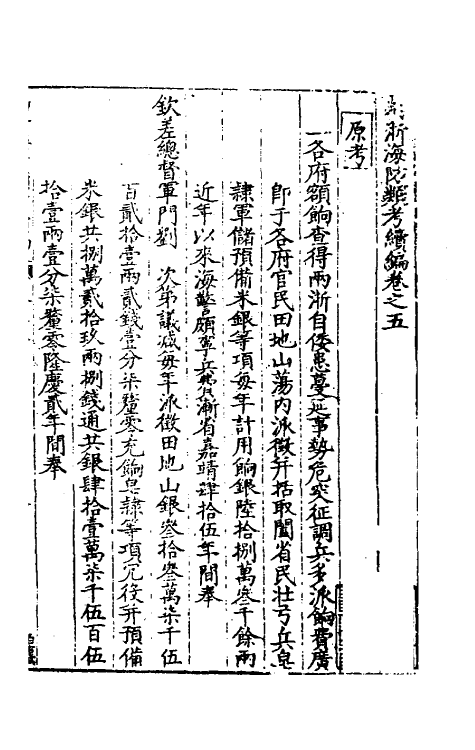 兩浙海防類考續編卷之五
原考
一各府額餉查得兩浙自倭患蔓延事勢危突征調兵多派餉費廣
即于各府官民田地山蕩內派徵并括取闔省民壯弓兵皂
隸軍儲預備米銀等項每年計用餉銀陸拾捌萬叁千餘兩
近年以來海警頗寧兵費漸省嘉靖肆拾伍年間奉
欽差總督軍門劉 次第議減每年派徵田地山銀叁拾叁萬柒千伍
百貳拾壹兩貳錢壹分柒釐零充餉皂隸等項冗役并預備
米銀共捌萬貳拾玖兩捌錢通共銀肆拾壹萬柒千伍百伍
拾壹兩壹分柒釐零隆慶貳年間奉